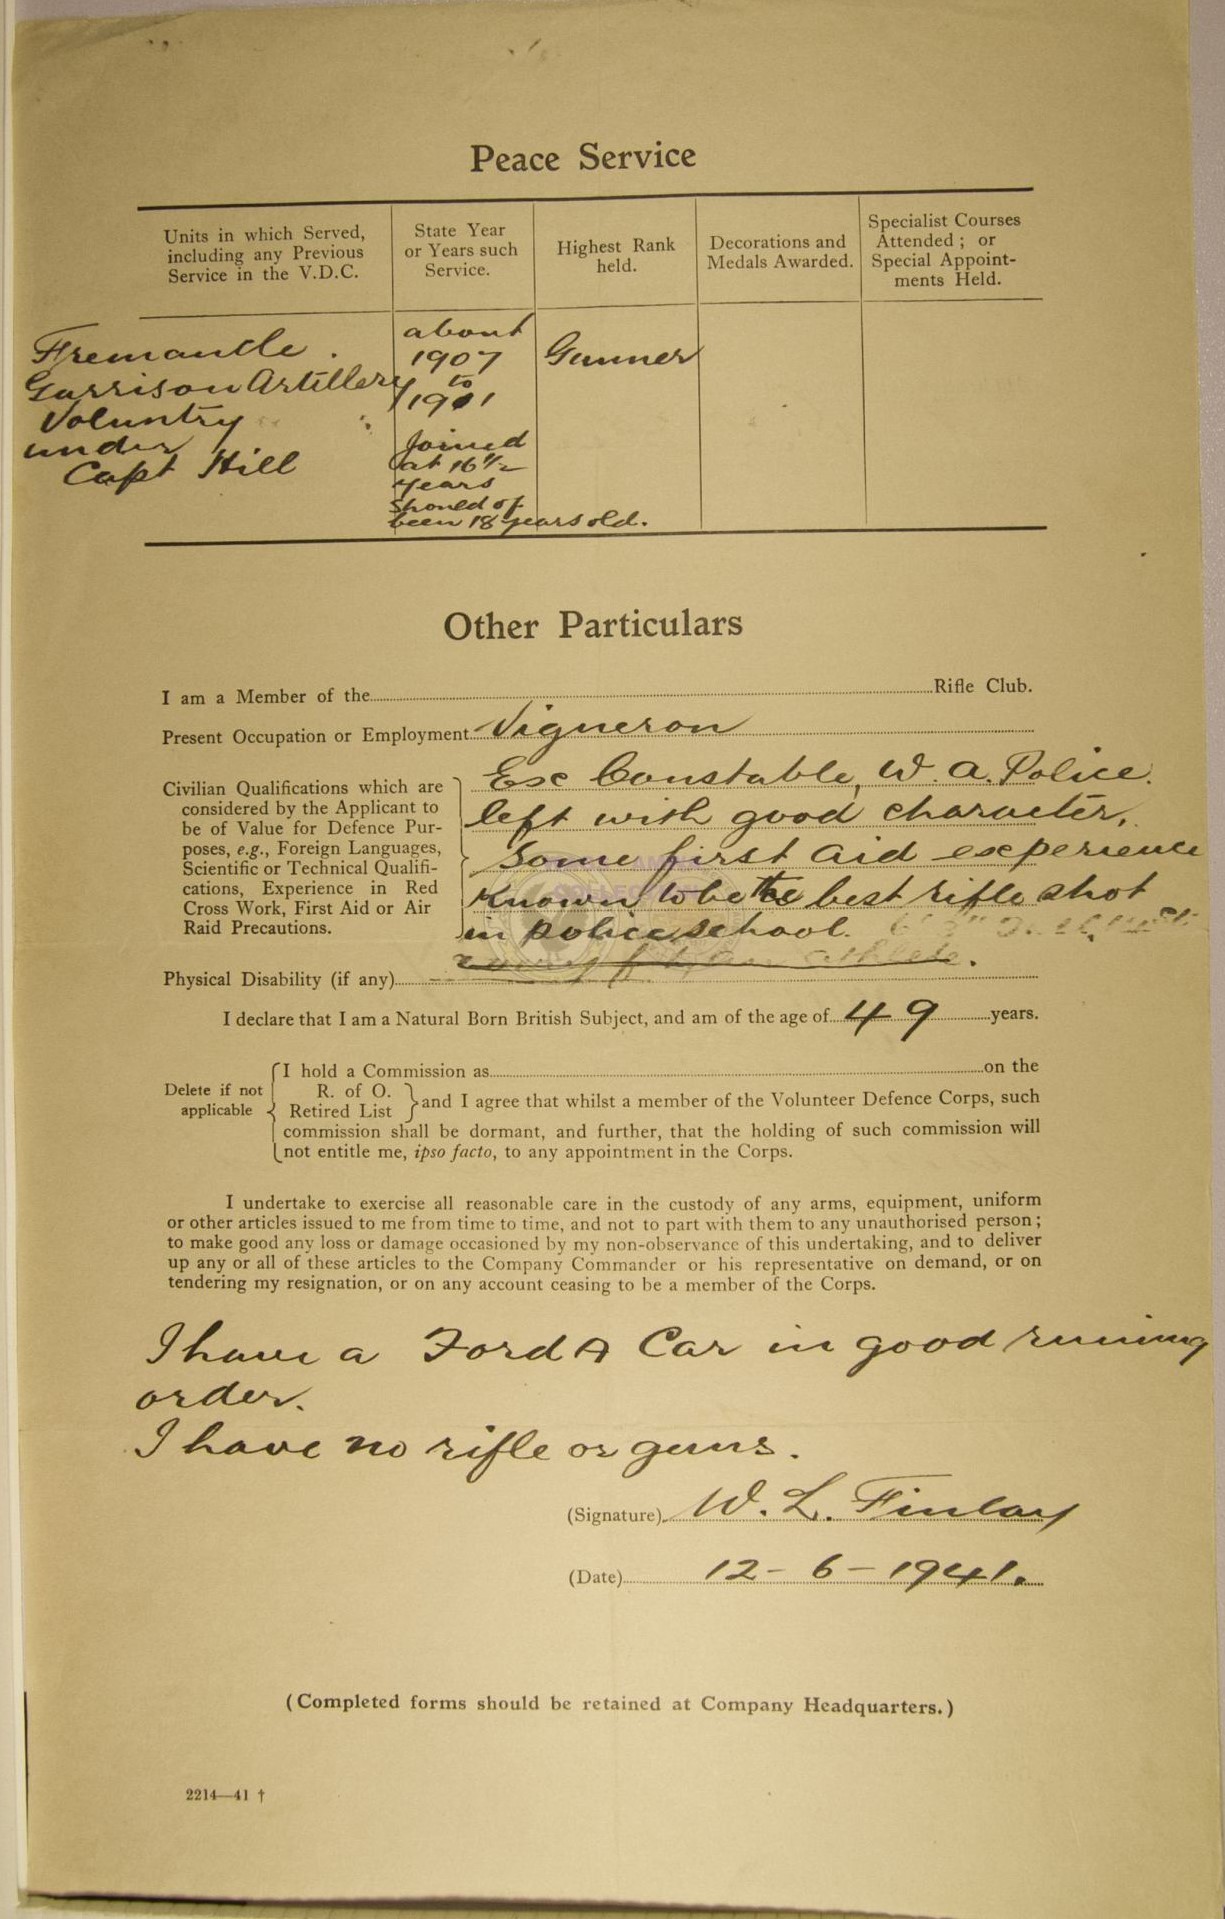 Peace Service
Units in which Served,
including any Previous
Service in the V.D.C.
State Year
or Years such
Service.
Highest Rank
held.
Decorations and
Medals Awarded.
Specialist Courses
Attended ; or
Special Appoint-
ments Held.
Fremantle.
Garrison Artillery
Voluntry
under
Capt Hill
about
1907
to
1911
Joined
at 16 1/2
years
Shoued of
been 18 years old.
Gunner
Other Particulars
I am a Member of the Rifle Club.
Present Occupation or Employment Vigneron
Civilian Qualifications which are
considered by the Applicant to
be of Value for Defence Pur-
poses, e.g., Foreign Languages,
Scientific or Technical Qualifi-
cations, Experience in Red
Cross Work, First Aid or Air
Raid Precautions.
Exc Constable, W. A. Police.
left with good character,
Some first aid experience
Known to be the best rifle shot
in police school.
athlete.
Physical Disability (if any)
I declare that I am a Natural Born British Subject, and am of the age of 49 years.
Delete if not
applicable
I hold a Commission as on the
R. of O.
Retired List
and I agree that whilst a member of the Volunteer Defence Corps, such
commission shall be dormant, and further, that the holding of such commission will
not entitle me, ipso facto, to any appointment in the Corps.
I undertake to exercise all reasonable care in the custody of any arms, equipment, uniform
or other articles issued to me from time to time, and not to part with them to any unauthorised person ;
to make good any loss or damage occasioned by my non-observance of this undertaking, and to deliver
up any or all of these articles to the Company Commander or his representative on demand, or on
tendering my resignation, or on any account ceasing to be a member of the Corps.
I have a Ford A Car in good runing
order.
I have no rifle or guns.
(Signature) W. L. Finlay
(Date) 12 - 6 - 1941.
(Completed forms should be retained at Company Headquarters.)
2214—41 †